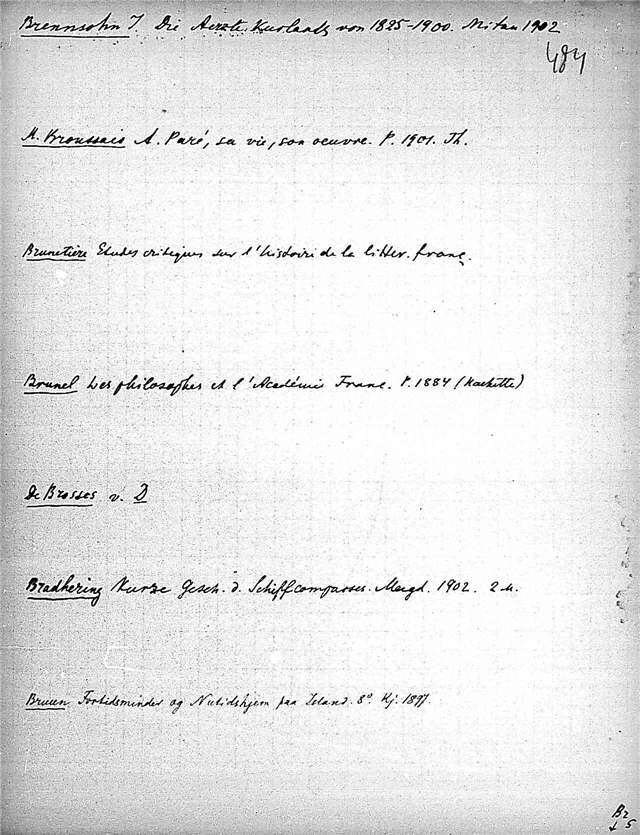 Brennsohn I. Die Aerzte Kurlands von 1825-1900. Mitau 1902
484
M. Broussais A. Paré, sa vie, son oeuvre. P. 1901. Th.
Brunetière Etudes critiques sur l'histoire de la litter. franç.
Brunel Les philosophes et l'Académie Franc. P. 1884 (Hachette)
de Brosses v. D
Bradhering Kurze Gesch. d. Schiffcompasses. Magd. 1902. 2 M.
Bruun Fortidsminder og Nutidshjem paa Island. 8º. Kj. 1897.
Br
5